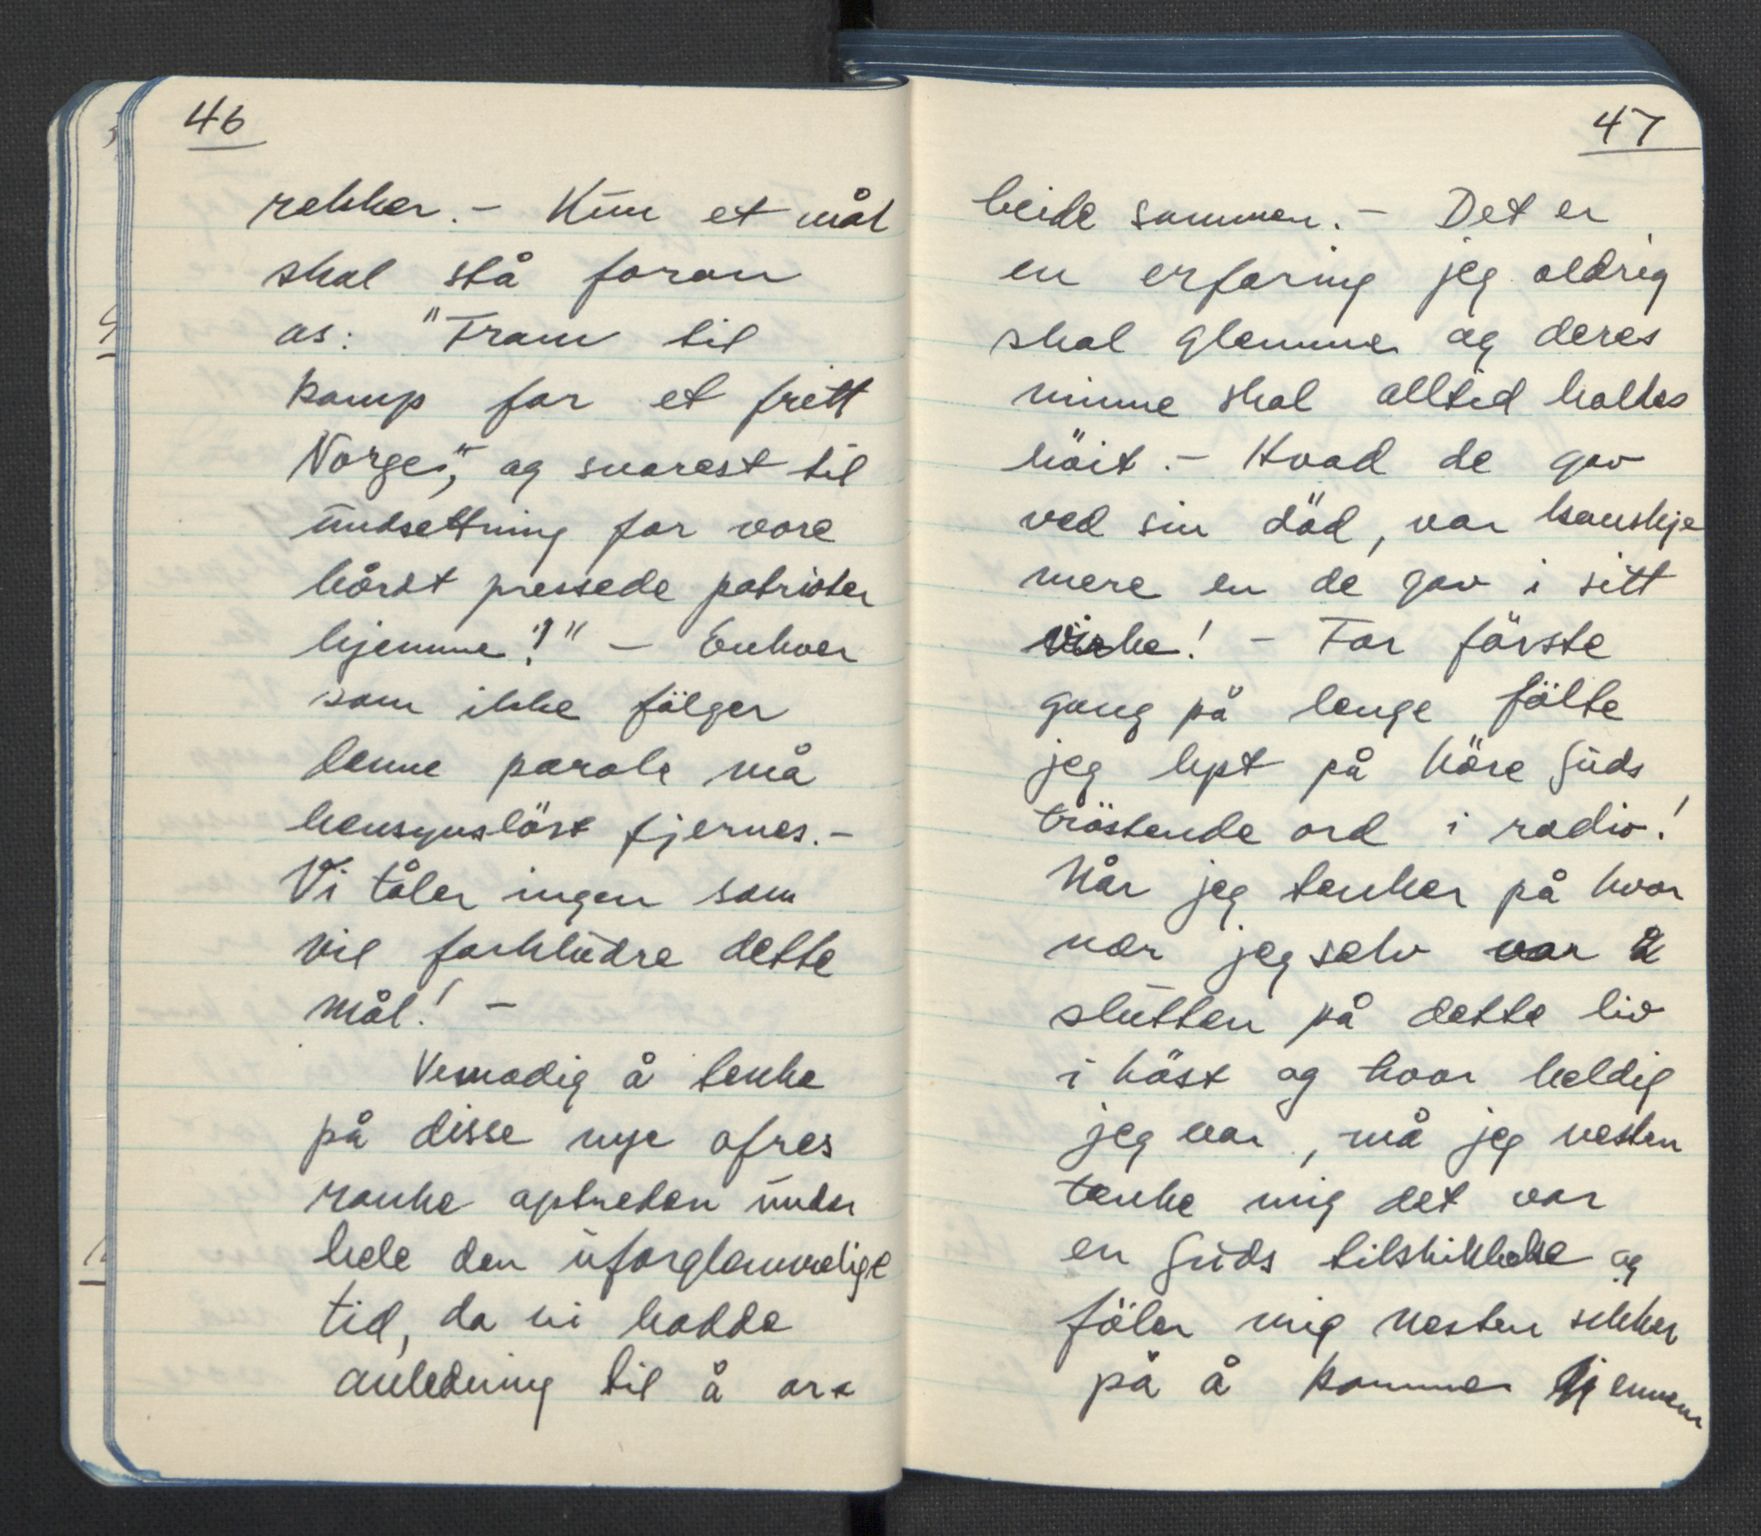 46
rekker. - Kun et mål
skal stå foran
os: "Fram til
kamp for et fritt
Norge", og snarest til
undsettning for vore
hårdt pressede patrioter
hjemme!" - Enhver
som ikke fölger
denne parole må
hensynslöst fjernes. -
Vi tåler ingen som
vil forkludre dette
mål! -
Vemodig å tenke
på disse nye ofres
ranke optreden under
hele den uforglemmelige
tid, da vi hadde
anledning til å ar-
47
beide sammen. - Det er
en erfaring jeg aldrig
skal glemme og deres
minne skal alltid holdes
höit. - Hvad de gav
ved sin död, var kanskje
mere en de gav i sitt
virke! - For förste
gang på lenge fölte
jeg lyst på höre Guds
tröstende ord i radio!
Når jeg tenker på hvor
nær jeg selv var
slutten på dette liv
i höst og hvor heldig
jeg var, må jeg nesten
tenke mig det var
en Guds tilskikkelse og
föler mig nesten sikker
på å komme gjennem